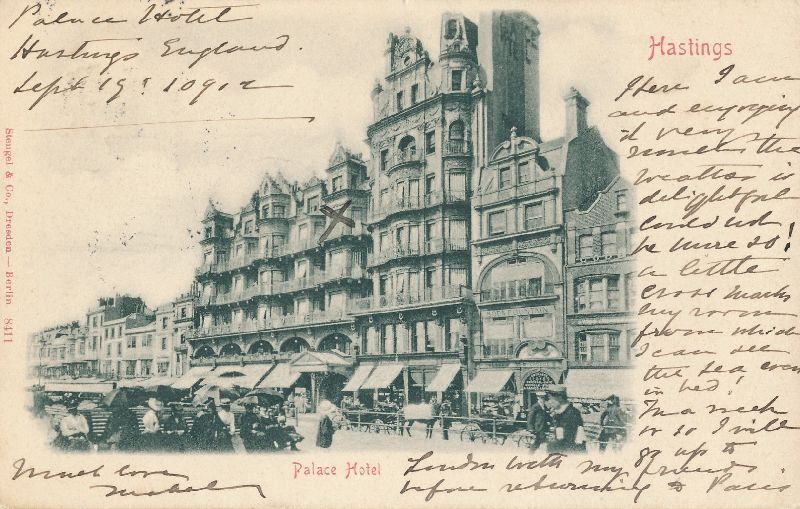 Palace Hotel
Hastings England.
Sept 19th 1902
Hastings
Here I am
and enjoying
it very
much the
weather is
delightful
could not
be more so!
a little
cross marks
my room
from which
I can see
the sea even
in bed!
In a week
or so I will
go up to
London with my friends
before returning to Paris
Much love
Palace Hotel
Stengel & Co., Dresden — Berlin 8411